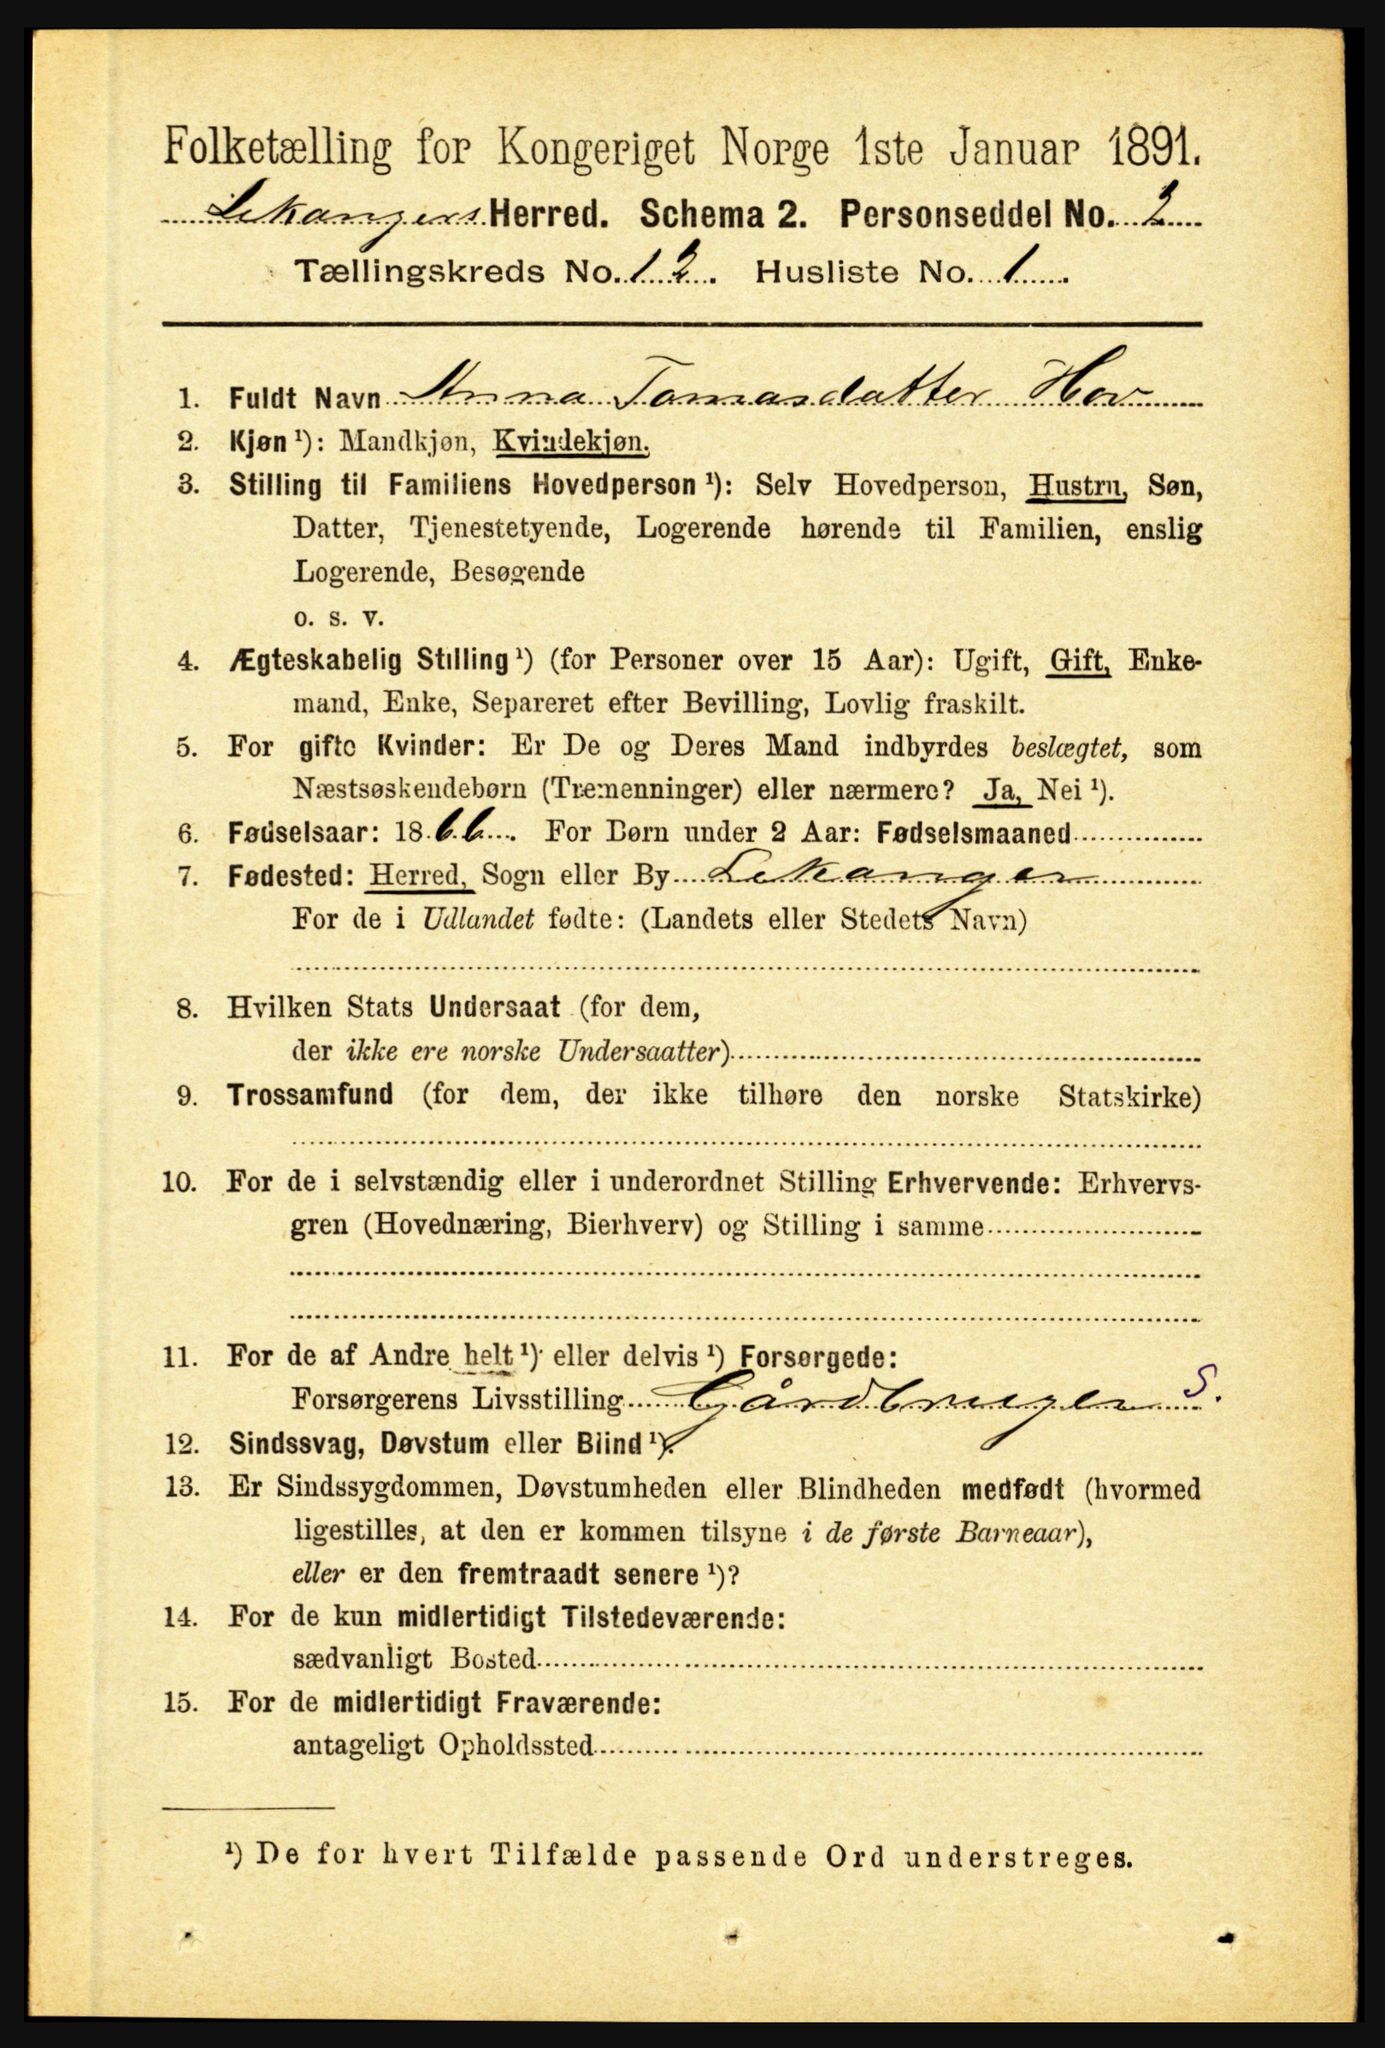 Folketælling for Kongeriget Norge 1ste Januar 1891.
Lekangers Herred. Schema 2. Personseddel No. 2
Tællingskreds No. 12. Husliste No. 1
1. Fuldt Navn Anna Tomasdatter Hov
2. Kjøn ¹): Mandkjøn, Kvindekjøn.
3. Stilling til Familiens Hovedperson ¹): Selv Hovedperson, Hustru, Søn,
Datter, Tjenestetyende, Logerende hørende til Familien, enslig
Logerende, Besøgende
o. s. v.
4. Ægteskabelig Stilling ¹) (for Personer over 15 Aar): Ugift, Gift, Enke-
mand, Enke, Separeret efter Bevilling, Lovlig fraskilt.
5. For gifte Kvinder: Er De og Deres Mand indbyrdes beslægtet, som
Næstsøskendebørn (Tremenninger) eller nærmere? Ja, Nei ¹).
6. Fødselsaar: 1866. For Børn under 2 Aar: Fødselsmaaned
7. Fødested: Herred, Sogn eller By Lekanger
For de i Udlandet fødte: (Landets eller Stedets Navn)
8. Hvilken Stats Undersaat (for dem,
der ikke ere norske Undersaatter)
9. Trossamfund (for dem, der ikke tilhøre den norske Statskirke)
10. For de i selvstændig eller i underordnet Stilling Erhvervende: Erhvervs-
gren (Hovednæring, Bierhverv) og Stilling i samme
11. For de af Andre helt ¹) eller delvis ¹) Forsørgede:
Forsørgerens Livsstilling Gårdbruger S.
12. Sindssvag, Døvstum eller Blind ¹).
13. Er Sindssygdommen, Døvstumheden eller Blindheden medfødt (hvormed
ligestilles, at den er kommen tilsyne i de første Barneaar),
eller er den fremtraadt senere ¹)?
14. For de kun midlertidigt Tilstedeværende:
sædvanligt Bosted
15. For de midlertidigt Fraværende:
antageligt Opholdssted
¹) De for hvert Tilfælde passende Ord understreges.